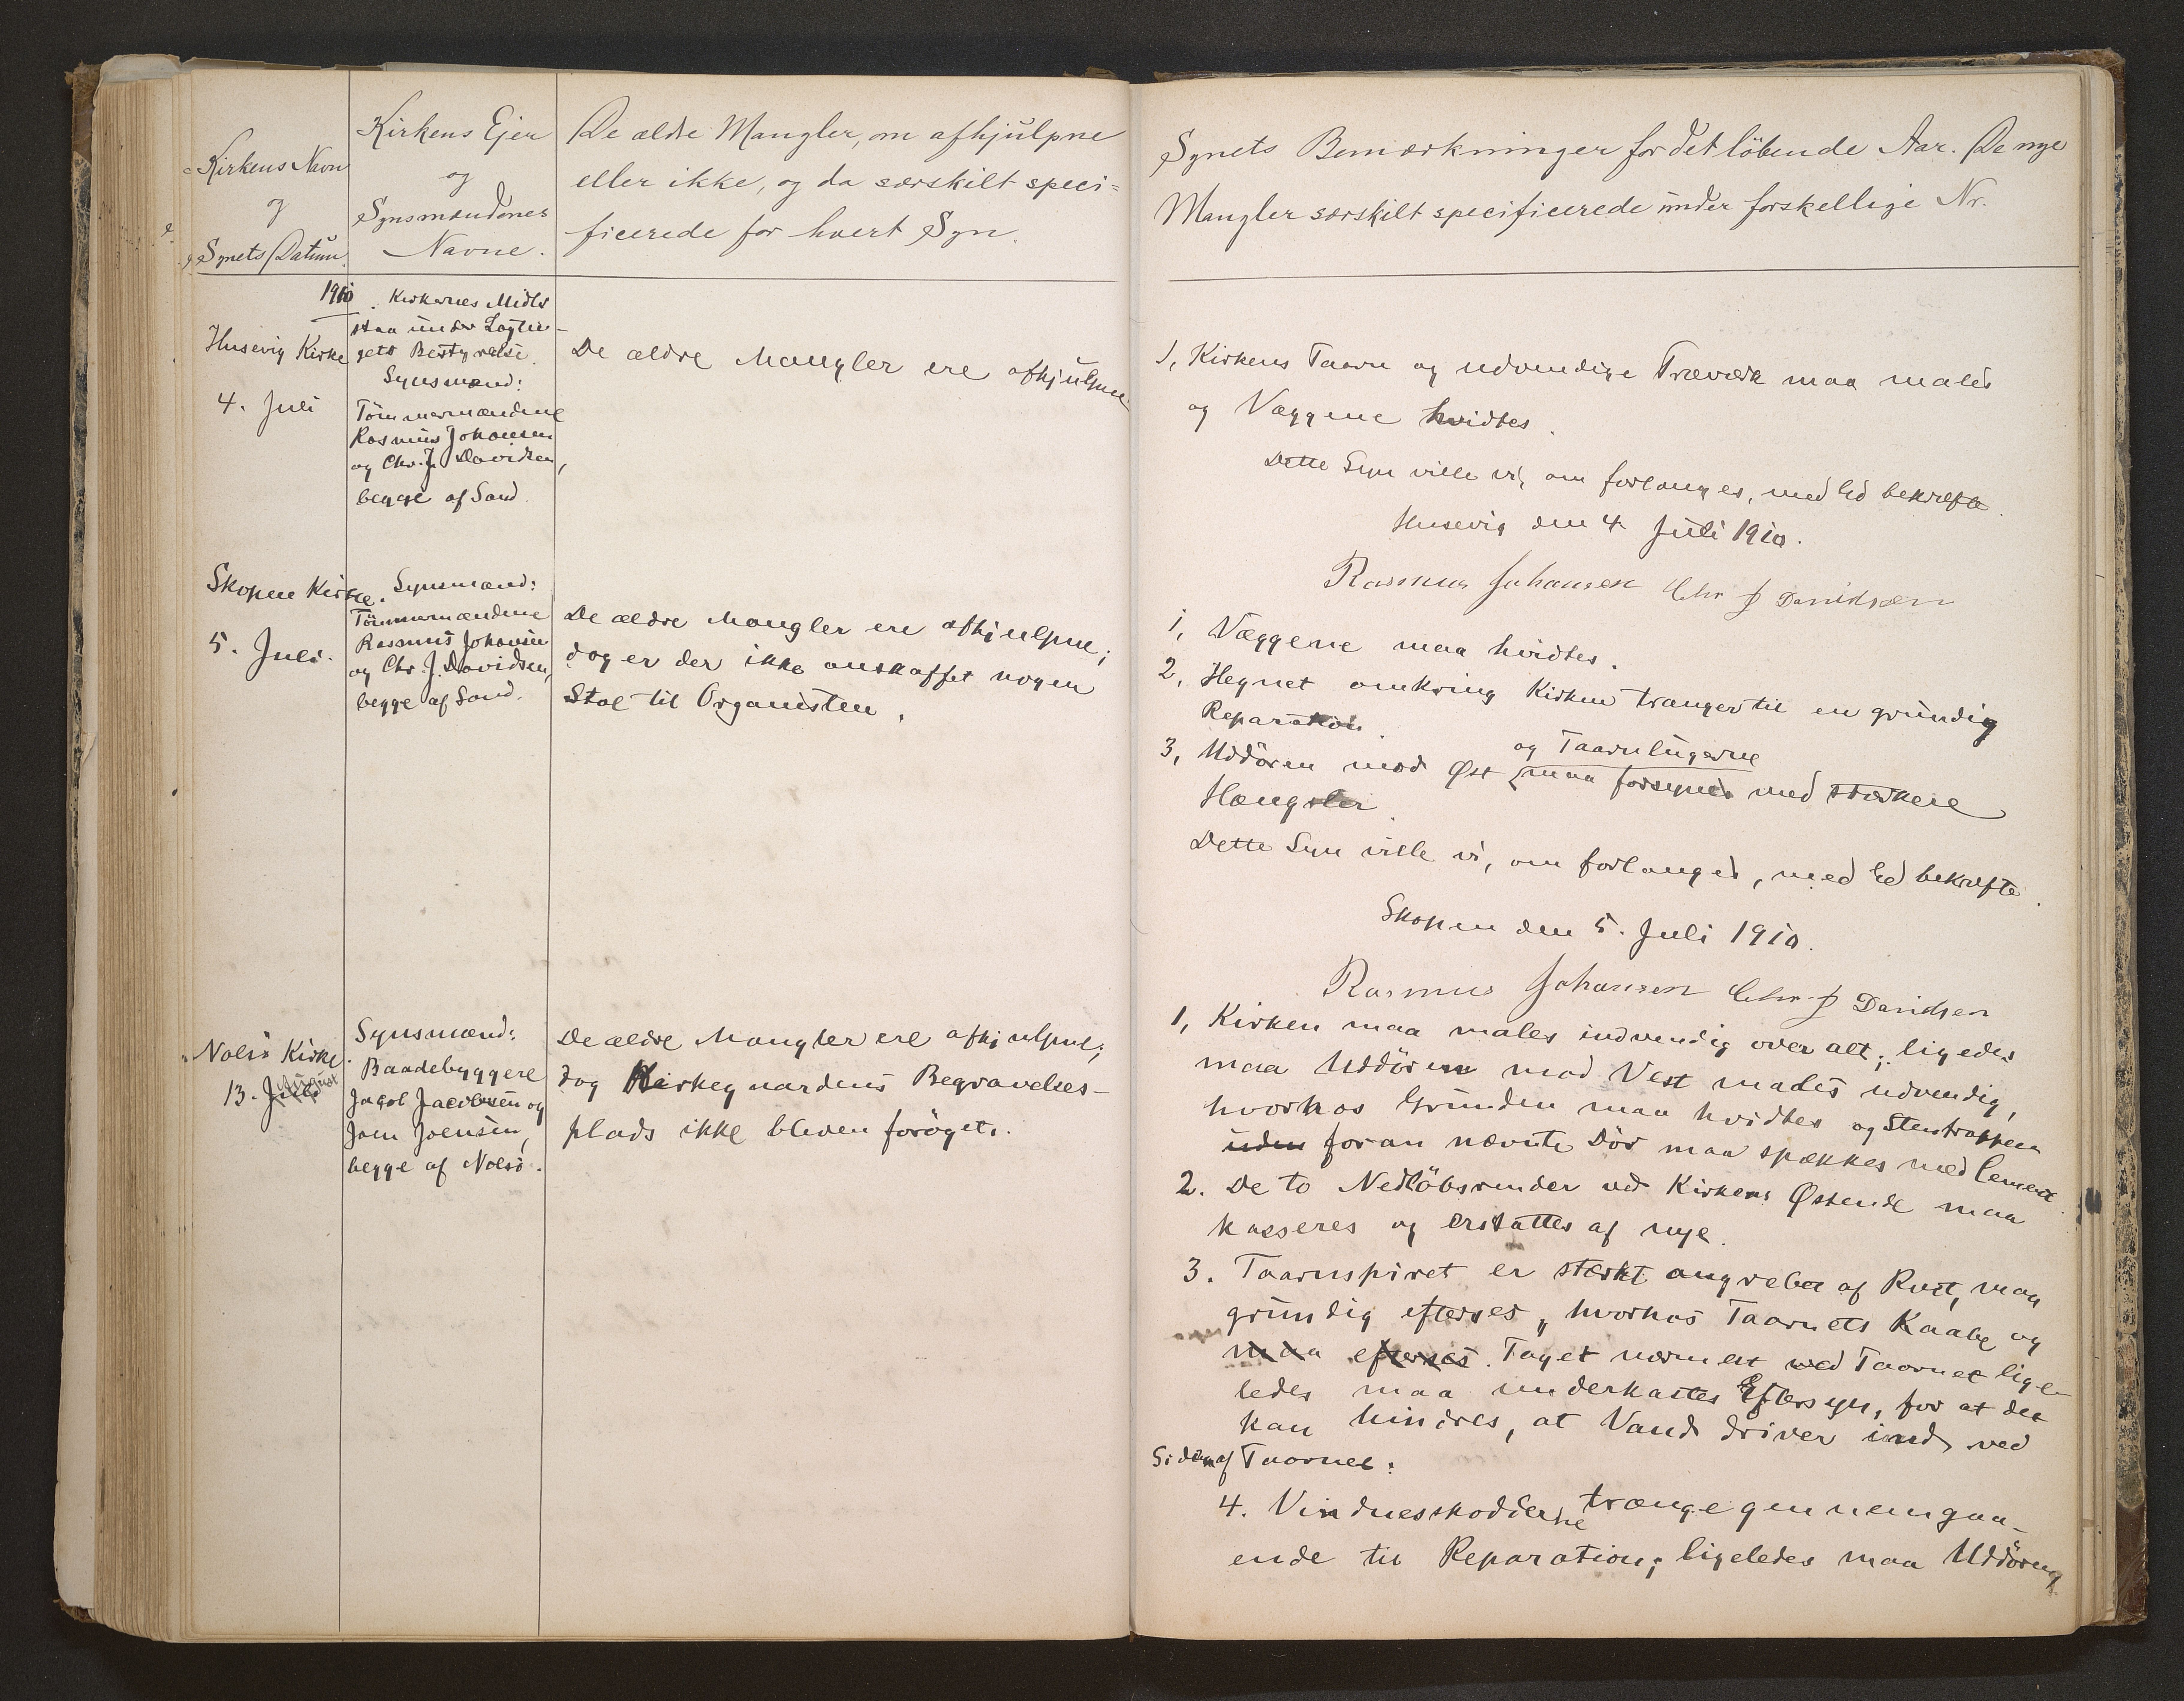 Kirkens Navn
og
Synets Datum.
Kirkens Ejer
og
Synsmændenes
Navne.
De ældre Mangler, om afhjulpne
eller ikke, og da særskilt speci=
ficerede for hvert Syn.
1910
Husevig Kirke
4. Juli
Kirkernes Midler
staa under Lagtin-
gets Bestyrelse.
Synsmænd:
Tömmermændene
Rasmus Johansen
og Chr. J. Davidsen,
begge af Sand.
De ældre Mangler ere afhjulpne.
Skopen Kirke.
5. Juli.
Synsmænd:
Tömmermændene
Rasmus Johansen
og Chr. J. Davidsen,
begge af Sand.
De ældre Mangler ere afhjulpne;
dog er der ikke anskaffet nogen
Stol til Organisten.
Nolsö Kirke.
13. Juli August
Synsmænd:
Baadebyggere
Jacob Jacobsen og
Joen Joensen,
begge af Nolsö.
De ældre Mangler ere afhjulpne;
dog Kirkegaardens Begravelses-
plads ikke bleven foröget.
Synets Bemærkninger for det löbende Aar. De nye
Mangler særskilt specificerede under forskellige Nr.
1, Kirkens Taarn og udvendige Træværk maa males
og Væggene hvidtes.
Dette Syn ville vi, om forlanges, med Ed bekræfte.
Husevig den 4. Juli 1910.
Rasmus Johansen Chr J Davidsen
1, Væggene maa hvidtes.
2, Hegnet omkring Kirken trænger til en grundig
Reparation.
og Taarnlugerne
3, Uddören mod Øst maa forsynes med stærkere
Hængsler.
Dette Syn ville vi, om forlanges, med Ed bekræfte.
Skopen den 5. Juli 1910.
Rasmus Johansen Chr J Davidsen
1, Kirken maa males indvendig over alt; ligedes
maa Uddören mod Vest males udvendig,
hvorhos Grunden maa hvidtes og Stentrappen
uden foran nævnte Dör maa spækkes med Cement.
2. De to Nedlöbsrender ved Kirkens Østende maa
kasseres og erstattes af nye.
3. Taarnspiret er stærkt angreben af Rust, maa
grundig efterses, hvorhos Taarnets Kaabe og
maa efterses. Taget nærmest ved Taarnet lige-
ledes maa underkastes Eftersyn, for at det
kan hindres, at Vand driver ind ved
Siden af Taarnet.
4. Vindueskodderne trænge gennemgaa-
ende til Reparation; ligeledes maa Uddörene